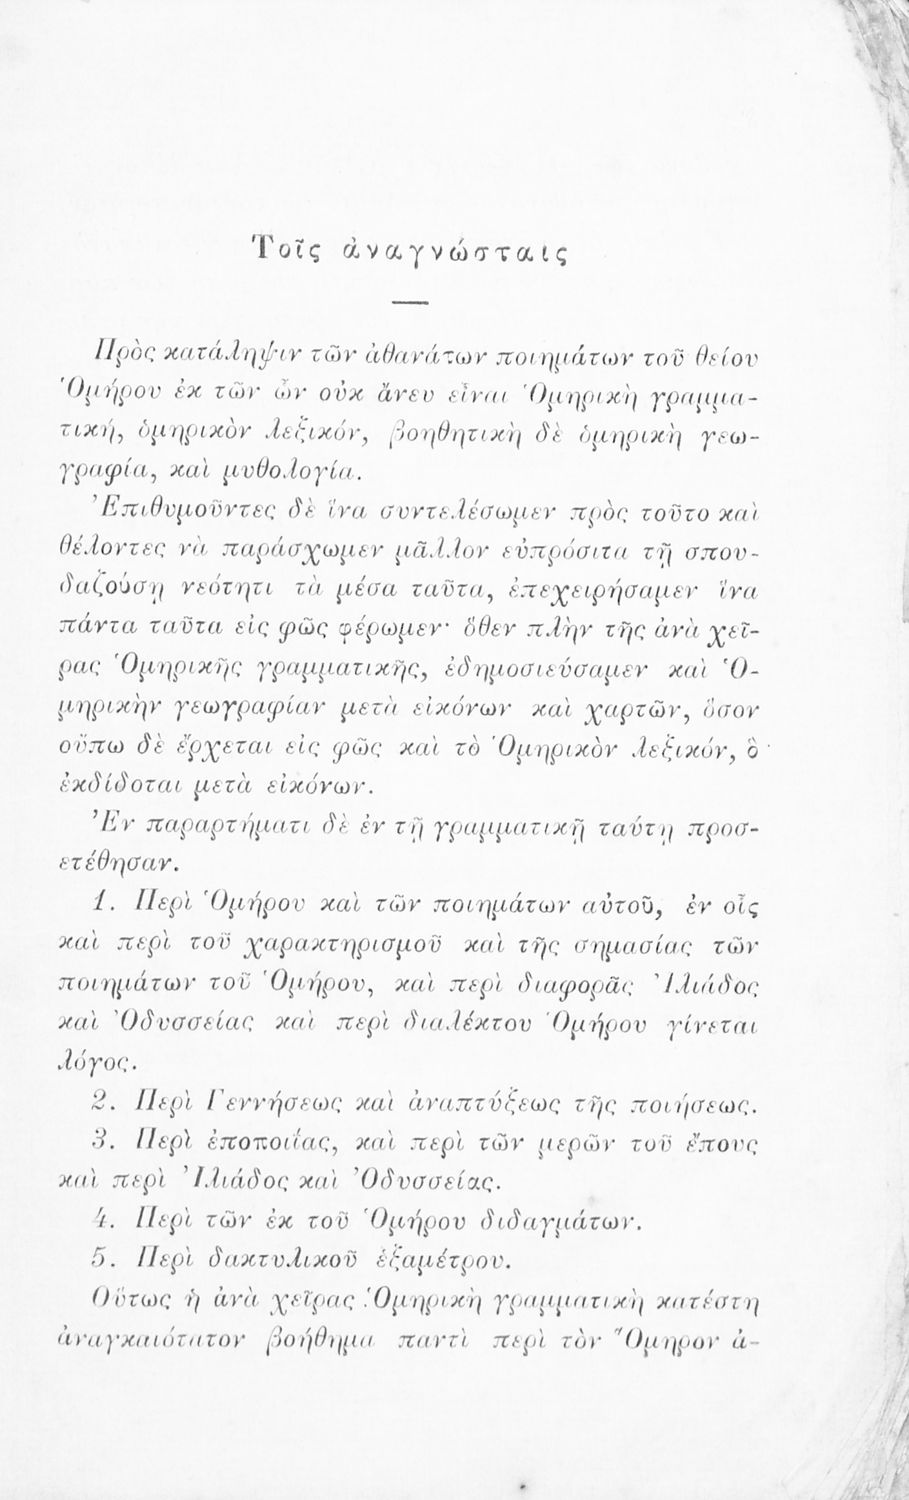 Τοῖς ἀναγνώσταις
Πρὸς κατάληψιν τῶν ἀθανάτων ποιημάτων τοῦ θείου
Ὁμήρου ἐκ τῶν ὧν οὐκ ἄνευ εἶναι Ὁμηρικὴ γραμμα-
τική, ὁμηρικὸν λεξικόν, βοηθητικὴ δὲ ὁμηρικὴ γεω-
γραφία, καὶ μυθολογία.
Ἐπιθυμοῦντες δὲ ἵνα συντελέσωμεν πρὸς τοῦτο καὶ
θέλοντες νὰ παράσχωμεν μᾶλλον εὐπρόσιτα τῇ σπου-
δαζούσῃ νεότητι τὰ μέσα ταῦτα, ἐπεχειρήσαμεν ἵνα
πάντα ταῦτα εἰς φῶς φέρωμεν· ὅθεν πλὴν τῆς ἀνὰ χεῖ-
ρας Ὁμηρικῆς γραμματικῆς, ἐδημοσιεύσαμεν καὶ Ὁ-
μηρικὴν γεωγραφίαν μετὰ εἰκόνων καὶ χαρτῶν, ὅσον
οὔπω δὲ ἔρχεται εἰς φῶς καὶ τὸ Ὁμηρικὸν λεξικόν, ὃ
ἐκδίδοται μετὰ εἰκόνων.
Ἐν παραρτήματι δὲ ἐν τῇ γραμματικῇ ταύτῃ προσ-
ετέθησαν.
1. Περὶ Ὁμήρου καὶ τῶν ποιημάτων αὐτοῦ, ἐν οἷς
καὶ περὶ τοῦ χαρακτηρισμοῦ καὶ τῆς σημασίας τῶν
ποιημάτων τοῦ Ὁμήρου, καὶ περὶ διαφορᾶς Ἰλιάδος
καὶ Ὀδυσσείας καὶ περὶ διαλέκτου Ὁμήρου γίνεται
λόγος.
2. Περὶ Γεννήσεως καὶ ἀναπτύξεως τῆς ποιήσεως.
3. Περὶ ἐποποιΐας, καὶ περὶ τῶν μερῶν τοῦ ἔπους
καὶ περὶ Ἰλιάδος καὶ Ὀδυσσείας.
4. Περὶ τῶν ἐκ τοῦ Ὁμήρου διδαγμάτων.
5. Περὶ δακτυλικοῦ ἑξαμέτρου.
Οὕτως ἡ ἀνὰ χεῖρας Ὁμηρικὴ γραμματικὴ κατέστη
ἀναγκαιότατον βοήθημα παντὶ περὶ τὸν Ὅμηρον ἀ-